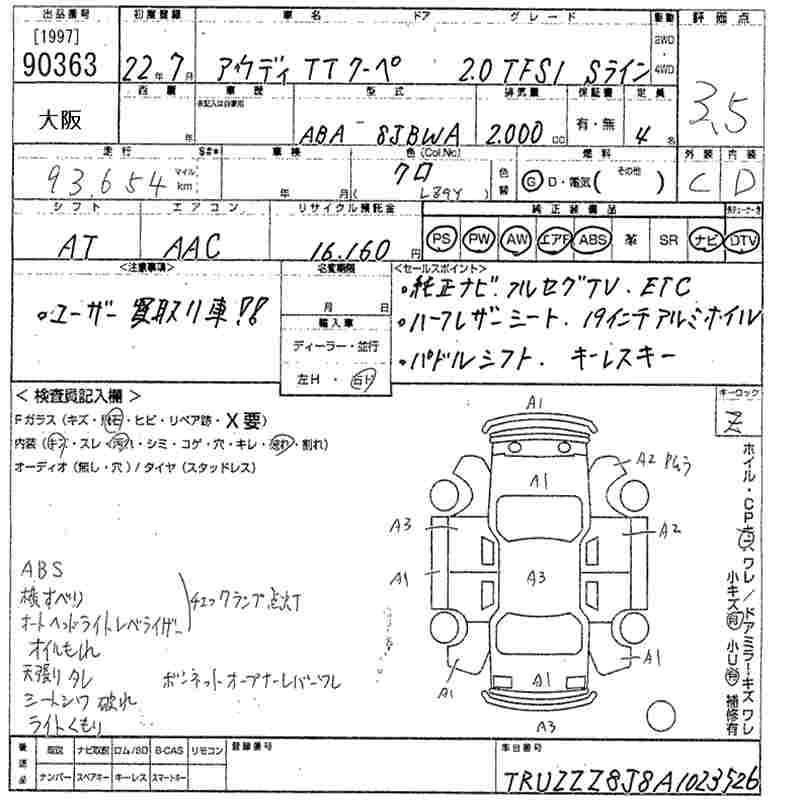 出品番号 初度登録 車名 ドア グレード 駆動 評価点
[1997]
90363 22年7月 アウディ TT クーペ 2.0 TFSI Sライン 2WD・4WD 3.5
大阪 西暦 年 車歴 未記入は自家用 型式 ABA-8JBWA 排気量 2.000cc 保証書 有・無 定員 4名
走行 S##* 車検 色(Col.No) 燃料 外装 内装
93.654 マイル km 年 月 クロ (L89Y) 色替 G・D・電気( その他 ) C D
シフト エアコン リサイクル預託金 純正装備品
AT AAC 16.160円 PS PW AW エアB ABS 革 SR ナビ DTV
<注意事項> 名変期限 <セールスポイント>
。ユーザー買取り車!! 月 日
・純正ナビ.フルセグTV.ETC
輸入車
・ハーフレザーシート.19インチアルミホイル
ディーラー・並行
・パドルシフト. キーレスキー
左H・右H
< 検査員記入欄 >
キーロック
Z
Fガラス (キズ・飛石・ヒビ・リペア跡・X要)
内装 (キズ・スレ・汚れ・シミ・コゲ・穴・キレ・破れ・割れ)
オーディオ (無し・穴) / タイヤ (スタッドレス)
A1
A2
A1
A3 A2
A1 A3
A1 A1 A1
A3
ホイル・CPキズ ワレ / ドアミラーキズ ワレ
小キズ有 小U有 補修有
ABS
横すべり
オートヘッドライトレベライザー
チェックランプ点灯
オイルもれ
天張りタレ ボンネットオープナーレバーワレ
シートシワ 破れ
ライトくもり
後送品 取説 ナビ取説 ロム/SD B-CAS リモコン 登録番号 車台番号
ナンバー スペアキー キーレス スマートキー TRUZZZ8J8A1023526